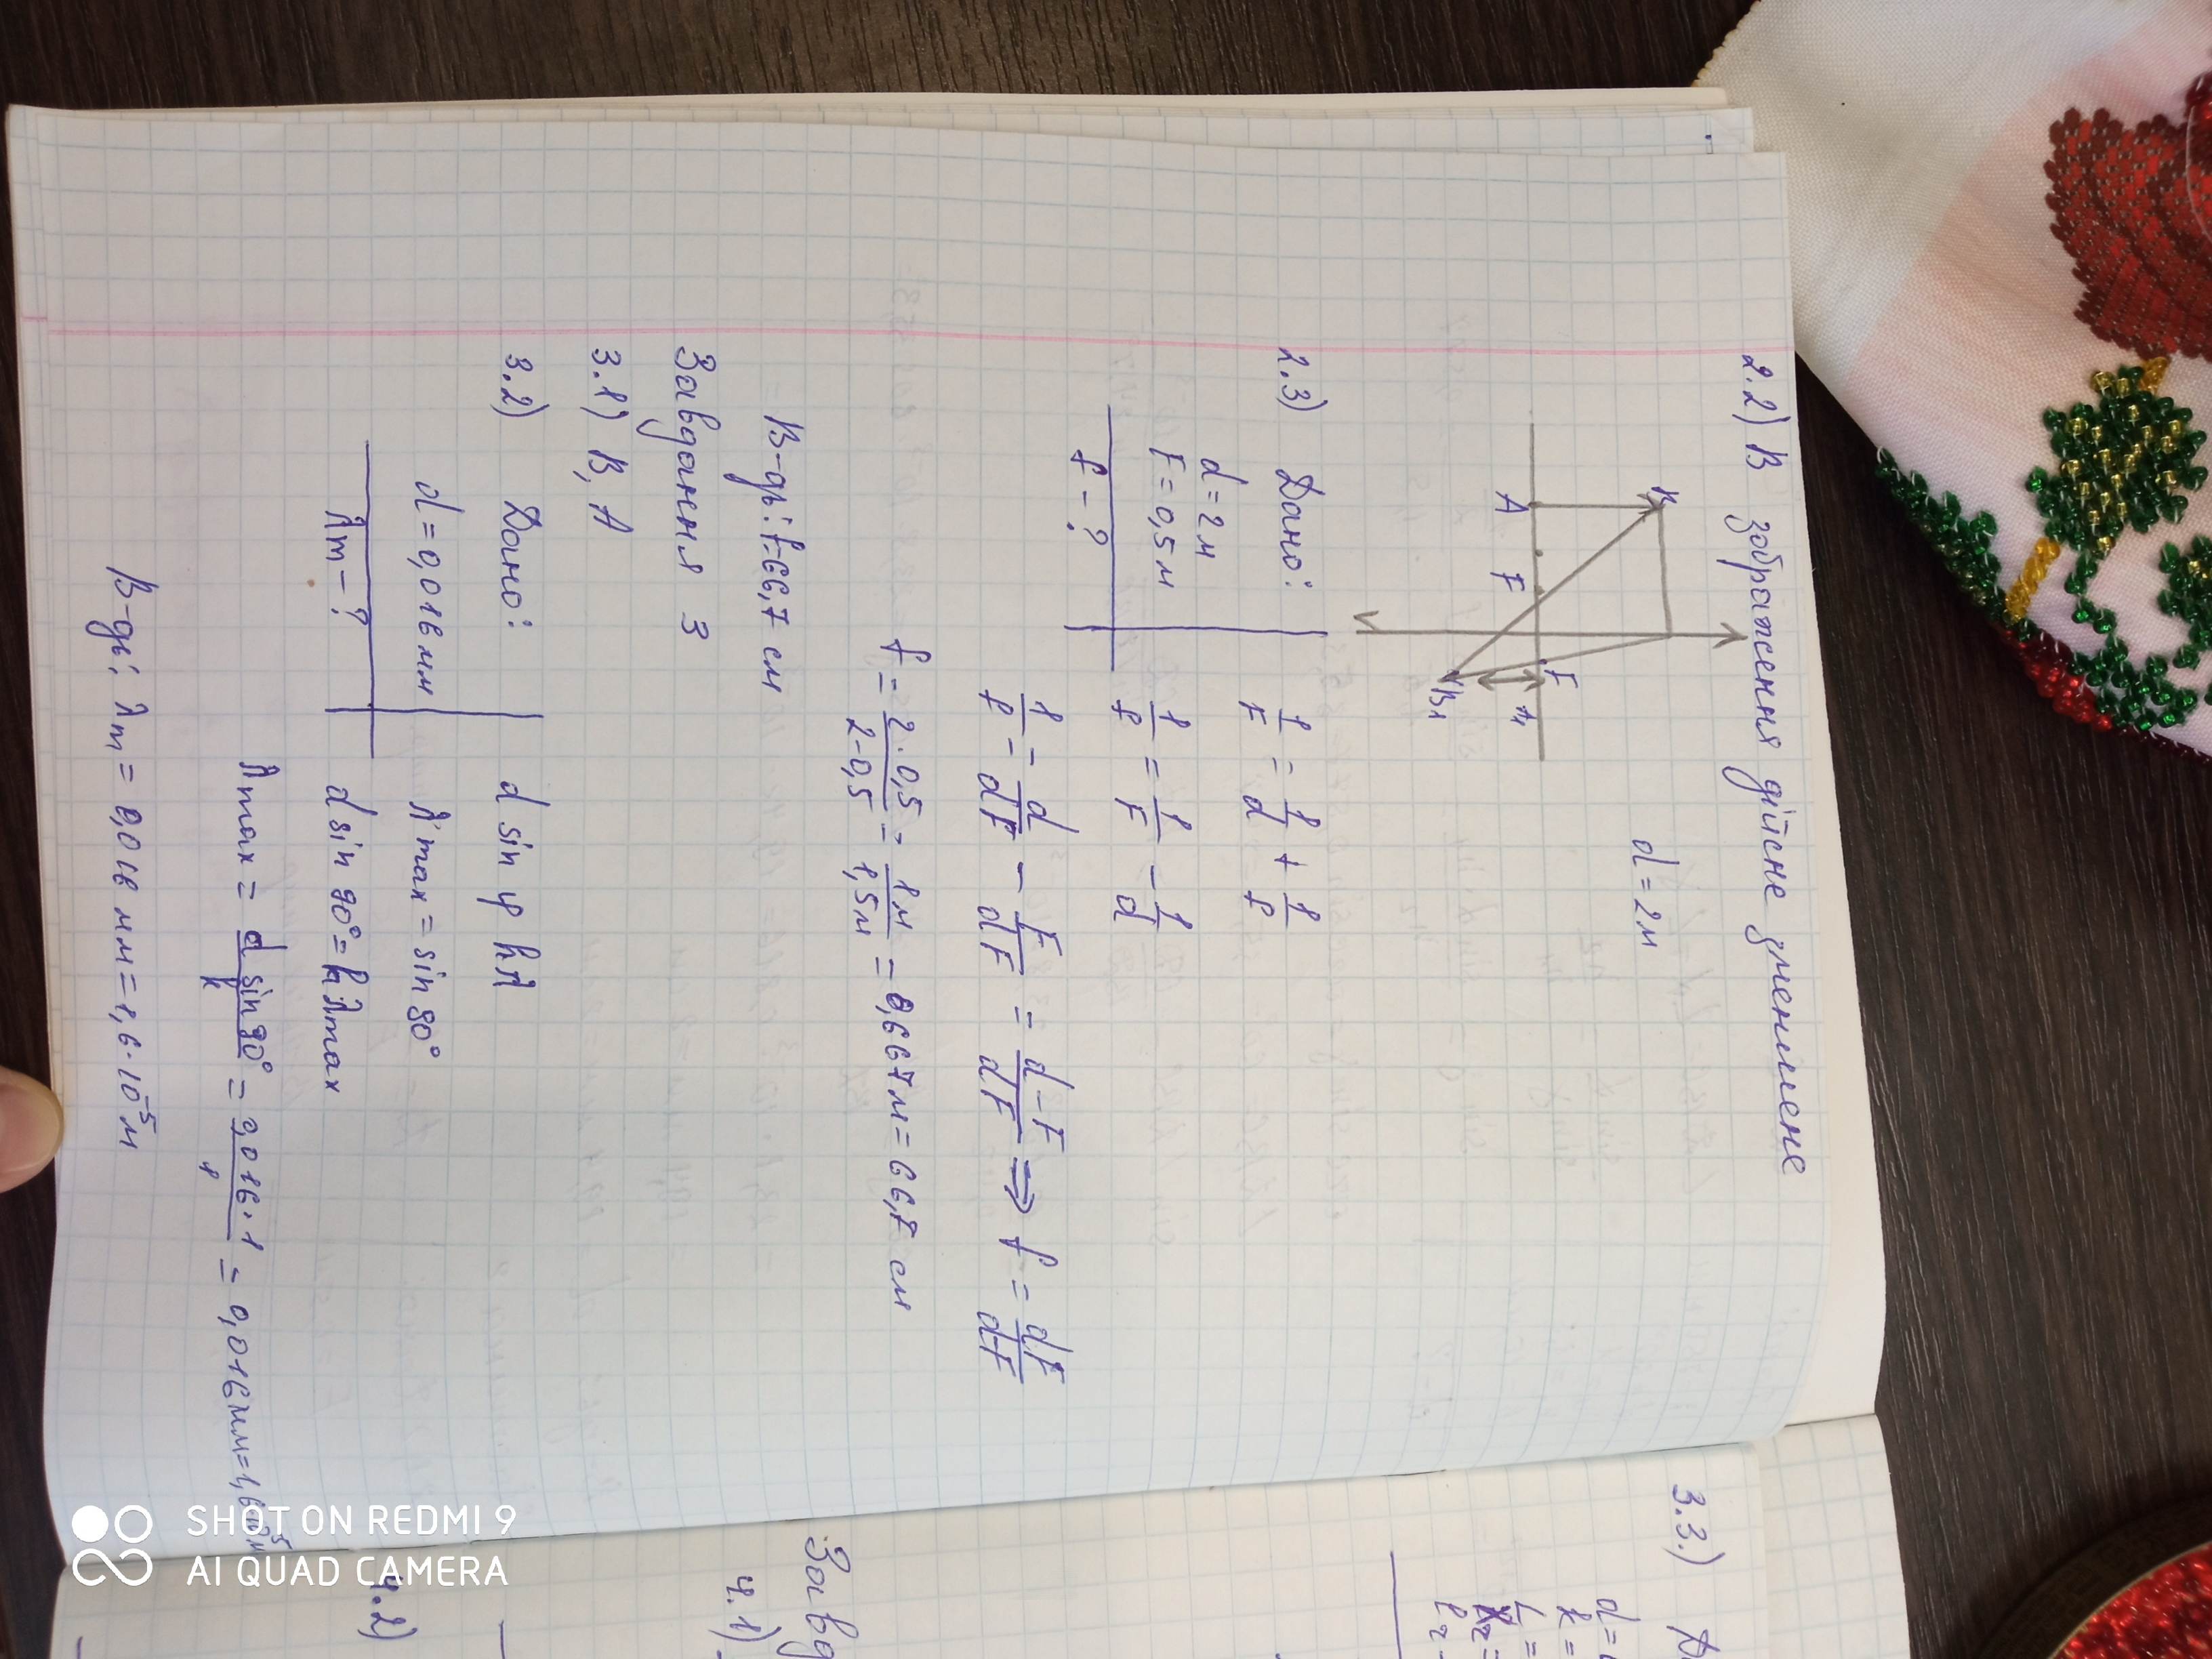 2.2) В зображення дійсне зменшене
d = 2м
В
A
F
F
A₁
B₁
2.3) Дано:
d = 2м
F = 0,5 м
f - ?
1/F = 1/d + 1/f
1/f = 1/F - 1/d
1/f = d/dF - F/dF = d-F/dF ⇒ f = dF/d-F
f = 2·0,5/2-0,5 = 1м/1,5м = 0,667м = 66,7 см
В-дь: f=66,7 см
Завдання 3
3.1) В, А
3.2) Дано:
d = 0,016 мм
λm - ?
d sin φ kλ
λmax = sin 90°
d sin 90° = k λmax
λmax = d sin 90°/k = 0,016·1/1 = 0,016мм = 1,6·10⁻⁵м
В-дь: λm = 0,016 мм = 1,6·10⁻⁵м
3.3.)
d=
k =
L =
Завд
4.1)
4.2)
SHOT ON REDMI 9
AI QUAD CAMERA